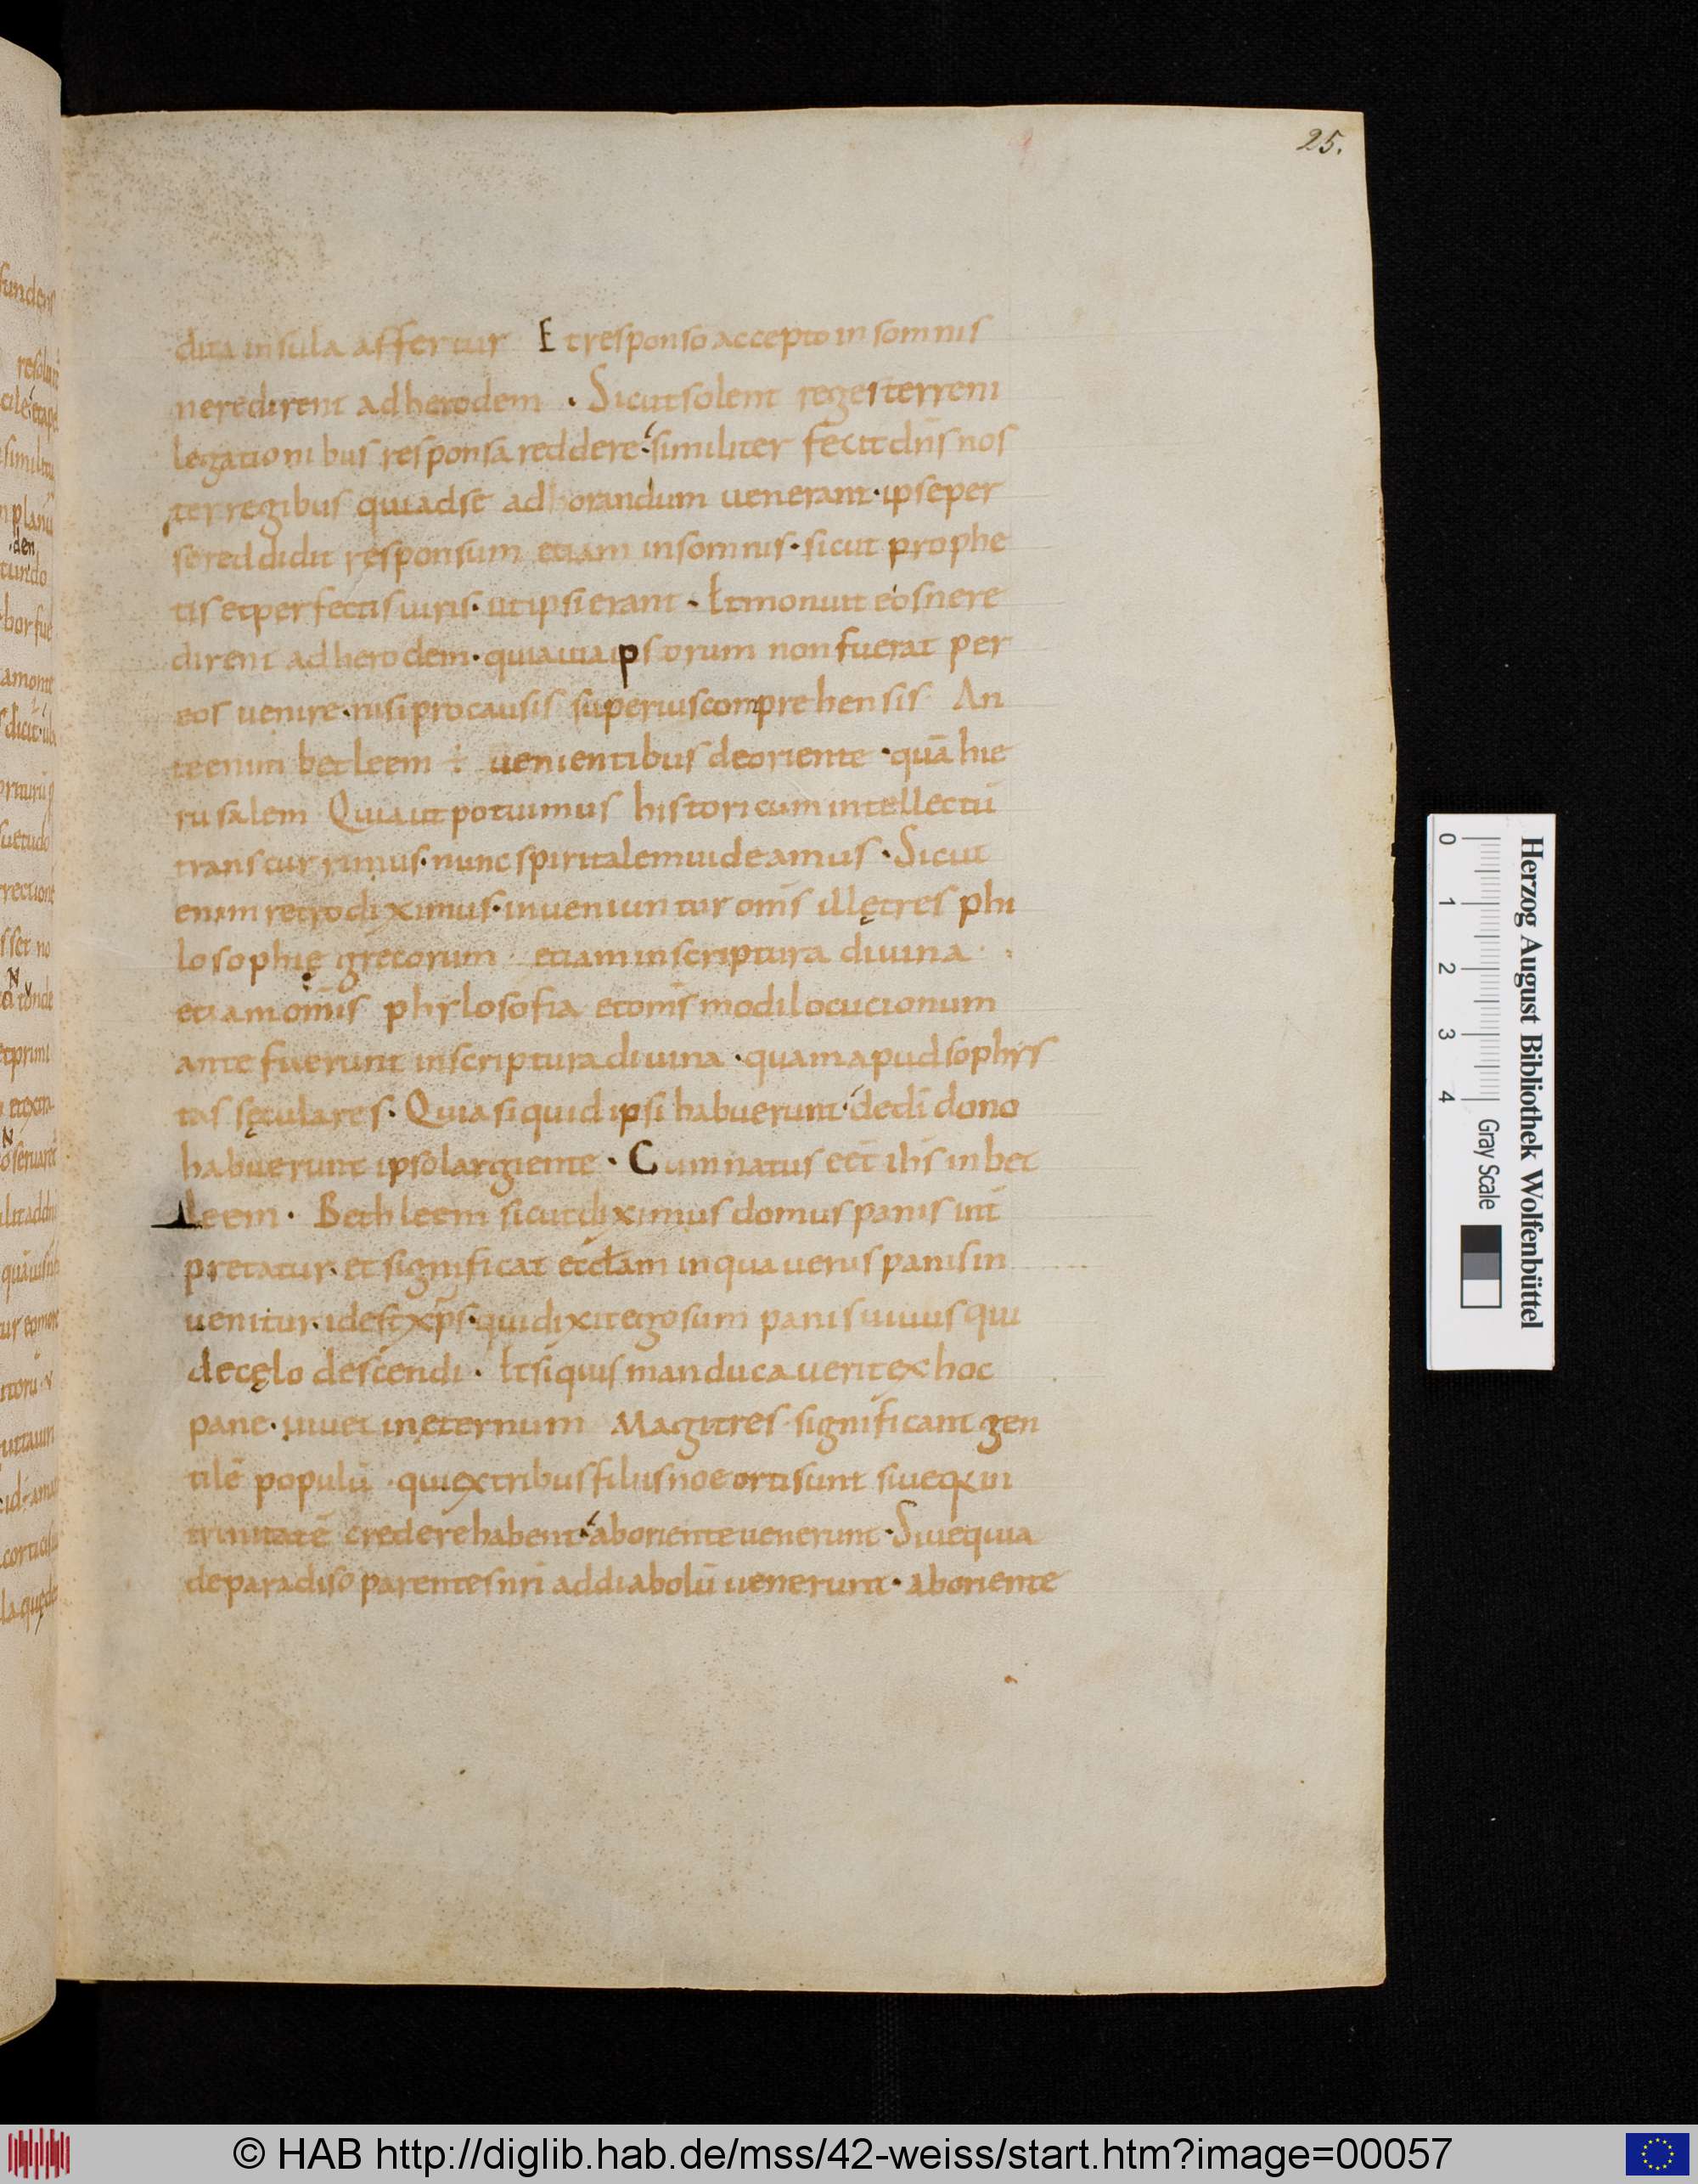 25.
dita insula affertur Et responso accepto in somnis
ne redirent ad herodem · Sicut solent reges terreni
legationibus responsa reddere · similiter fecit dn̄s nos
ter regibus qui ad se adhorandum uenerant · ipse per
se reddidit responsum etiam in somnis · sicut prophe
tis et perfectis uiris · ut ipsi erant · Et monuit eos ne re
dirent ad herodem · quia uia ipsorum non fuerat per
eos uenire · nisi pro causis superius comprehensis An
te enim betleem ÷ uenientibus de oriente · quā hie
rusalem Quia ut potuimus historicum intellectū
transcurrimus · nunc spiritalem uideamus · Sicut
enim retro diximus · inueniuntur om̄s illę tres phi
losophię grecorum etiam in scriptura diuina ·
etiam om̄is phylosofia et om̄s modi locucionum
ante fuerunt in scriptura diuina · quam apud sophys
tas sęculares · Quia si quid ipsi habuerunt · de dī dono
habuerunt ipso largiente · Cum natus eēt ihs̄ in bet
leem · Bethleem sicut diximus domus panis int̄
pretatur · et significat ecclam in qua uerus panis in
uenitur · id est xp̄s · qui dixit ego sum panis uiuus qui
de cęlo descendi · Et si quis manducauerit ex hoc
pane · uiuet in eternum Magi tres significant gen
tilē populū · qui ex tribus filiis noe orti sunt siue q in
trinitatē credere habent · ab oriente uenerunt · Siue quia
de paradiso parentes nr̄i ad diabolū uenerunt · ab oriente
Herzog August Bibliothek Wolfenbüttel
0 1 2 3 4 Gray Scale
© HAB http://diglib.hab.de/mss/42-weiss/start.htm?image=00057